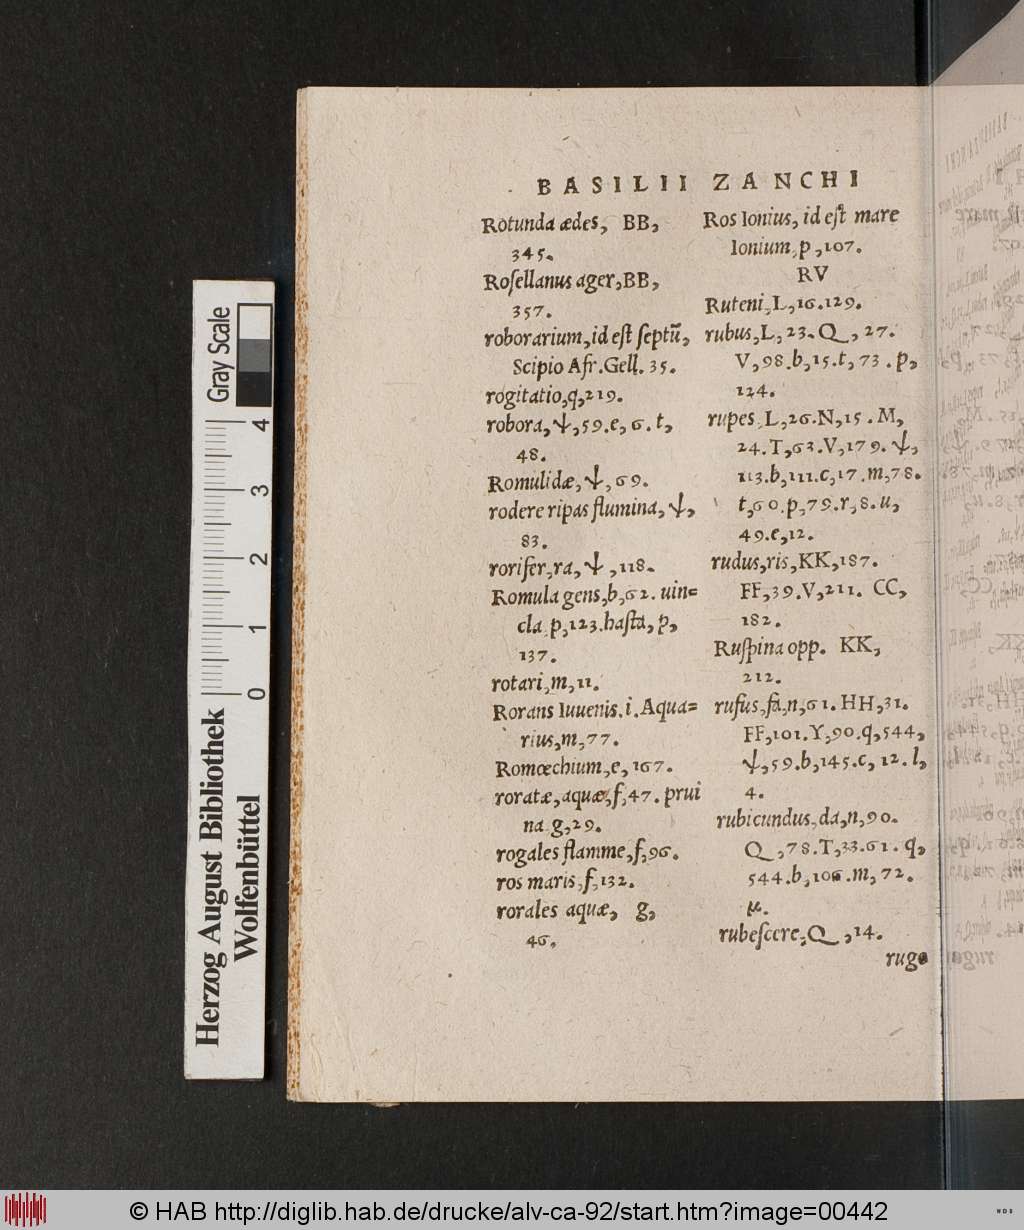 BASILII ZANCHI
Rotunda ædes, BB,
345.
Roſellanus ager, BB,
357.
roborarium, id eſt ſeptū,
Scipio Afr. Gell. 35.
rogitatio, q, 219.
robora, Ψ, 59. e, 6. t,
48.
Romulidæ, Ψ, 69.
rodere ripas flumina, Ψ,
83.
rorifer, ra, Ψ, 118.
Romula gens, b, 62. uin=
cla. p, 123. haſta, p,
137.
rotari, m, 11.
Rorans Iuuenis. i. Aqua=
rius, m, 77.
Romœchium, e, 167.
roratæ, aquæ, f, 47. prui
na. g, 29.
rogales flamme, f, 96.
ros maris, f, 132.
rorales aquæ, g,
46.
Ros Ionius, id eſt mare
Ionium, p, 107.
RV
Ruteni, L, 16. 129.
rubus, L, 23. Q, 27.
V, 98. b, 15. t, 73. p,
124.
rupes, L, 26. N, 15. M,
24. T, 63. V, 179. Ψ,
113. b, 111. c, 17. m, 78.
t, 60. p, 79. r, 8. u,
49. e, 12.
rudus, ris, KK, 187.
FF, 39. V, 211. CC,
182.
Ruſpina opp. KK,
212.
rufus, fa, n, 61. HH, 31.
FF, 101. Y, 90. q, 544,
Ψ, 59. b, 145. c, 12. l,
4.
rubicundus, da, n, 90.
Q, 78. T, 33. 61. q,
544. b, 106. m, 72.
μ.
rubeſcere, Q, 14.
ruga
Gray Scale
0 1 2 3 4
Herzog August Bibliothek
Wolfenbüttel
© HAB http://diglib.hab.de/drucke/alv-ca-92/start.htm?image=00442